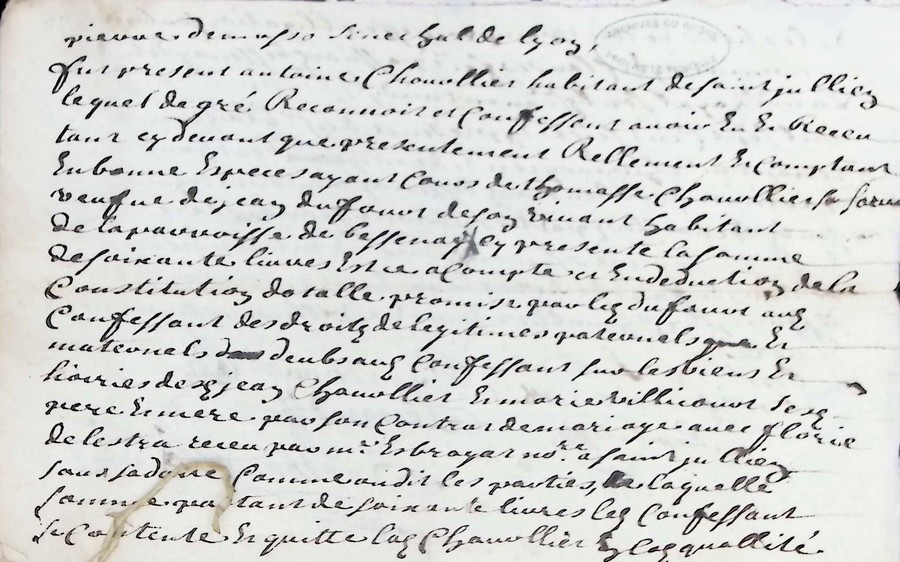 pierre de masso senechal de lyon,
fut present antoine Chovollier habitant de saint jullien
lequel de gré Reconnoit et Confessent avoir Eu Et Receu
tant cy devant que presentement Rellement Et comptant
En bonne Especes ayant Cours de thomasse Chovollier sa soeur
veufue de jean dufouot de son vivant habitant
de la parroisse de bessenay cy presente la somme
de soixante livres Est ce a Compte et En deduction de la
Constitution dotalle promise par led dufouot aud
Confessant des droits de legitimes paternels Et
maternels deubs aud Confessant sur les biens Et
hoiries desd jean Chovollier Et marie villicouot sesd
pere Et mere par son Contrat de mariage avec florie
de lestra receu par mr Esbrayat nore a saint jullien
sous sa datte Comme ont dit les parties, de laquelle
somme partant de soixante livres led Confessant
se Contente Et quitte lad Chovollier En lad quallité